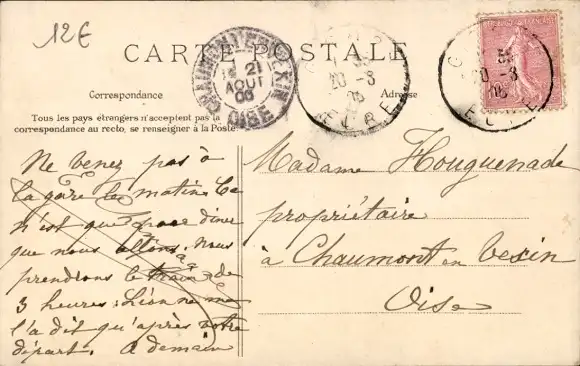 12€
CARTE POSTALE
Correspondance
Adresse
Tous les pays étrangers n'acceptent pas la
correspondance au recto, se renseigner à la Poste.
CHAUMONT-EN-VEXIN
21
AOUT
06
OISE
20 -8
06
EURE
20 -8
06
Ne venez pas à
la gare le matin. Ce
n'est que pour diner
que nous allons. Nous
prendrons le train de
3 heures. Léon ne me
l'a dit qu'après votre
départ. A demain
Madame Houguenade
propriétaire
à Chaumont en Vexin
Oise